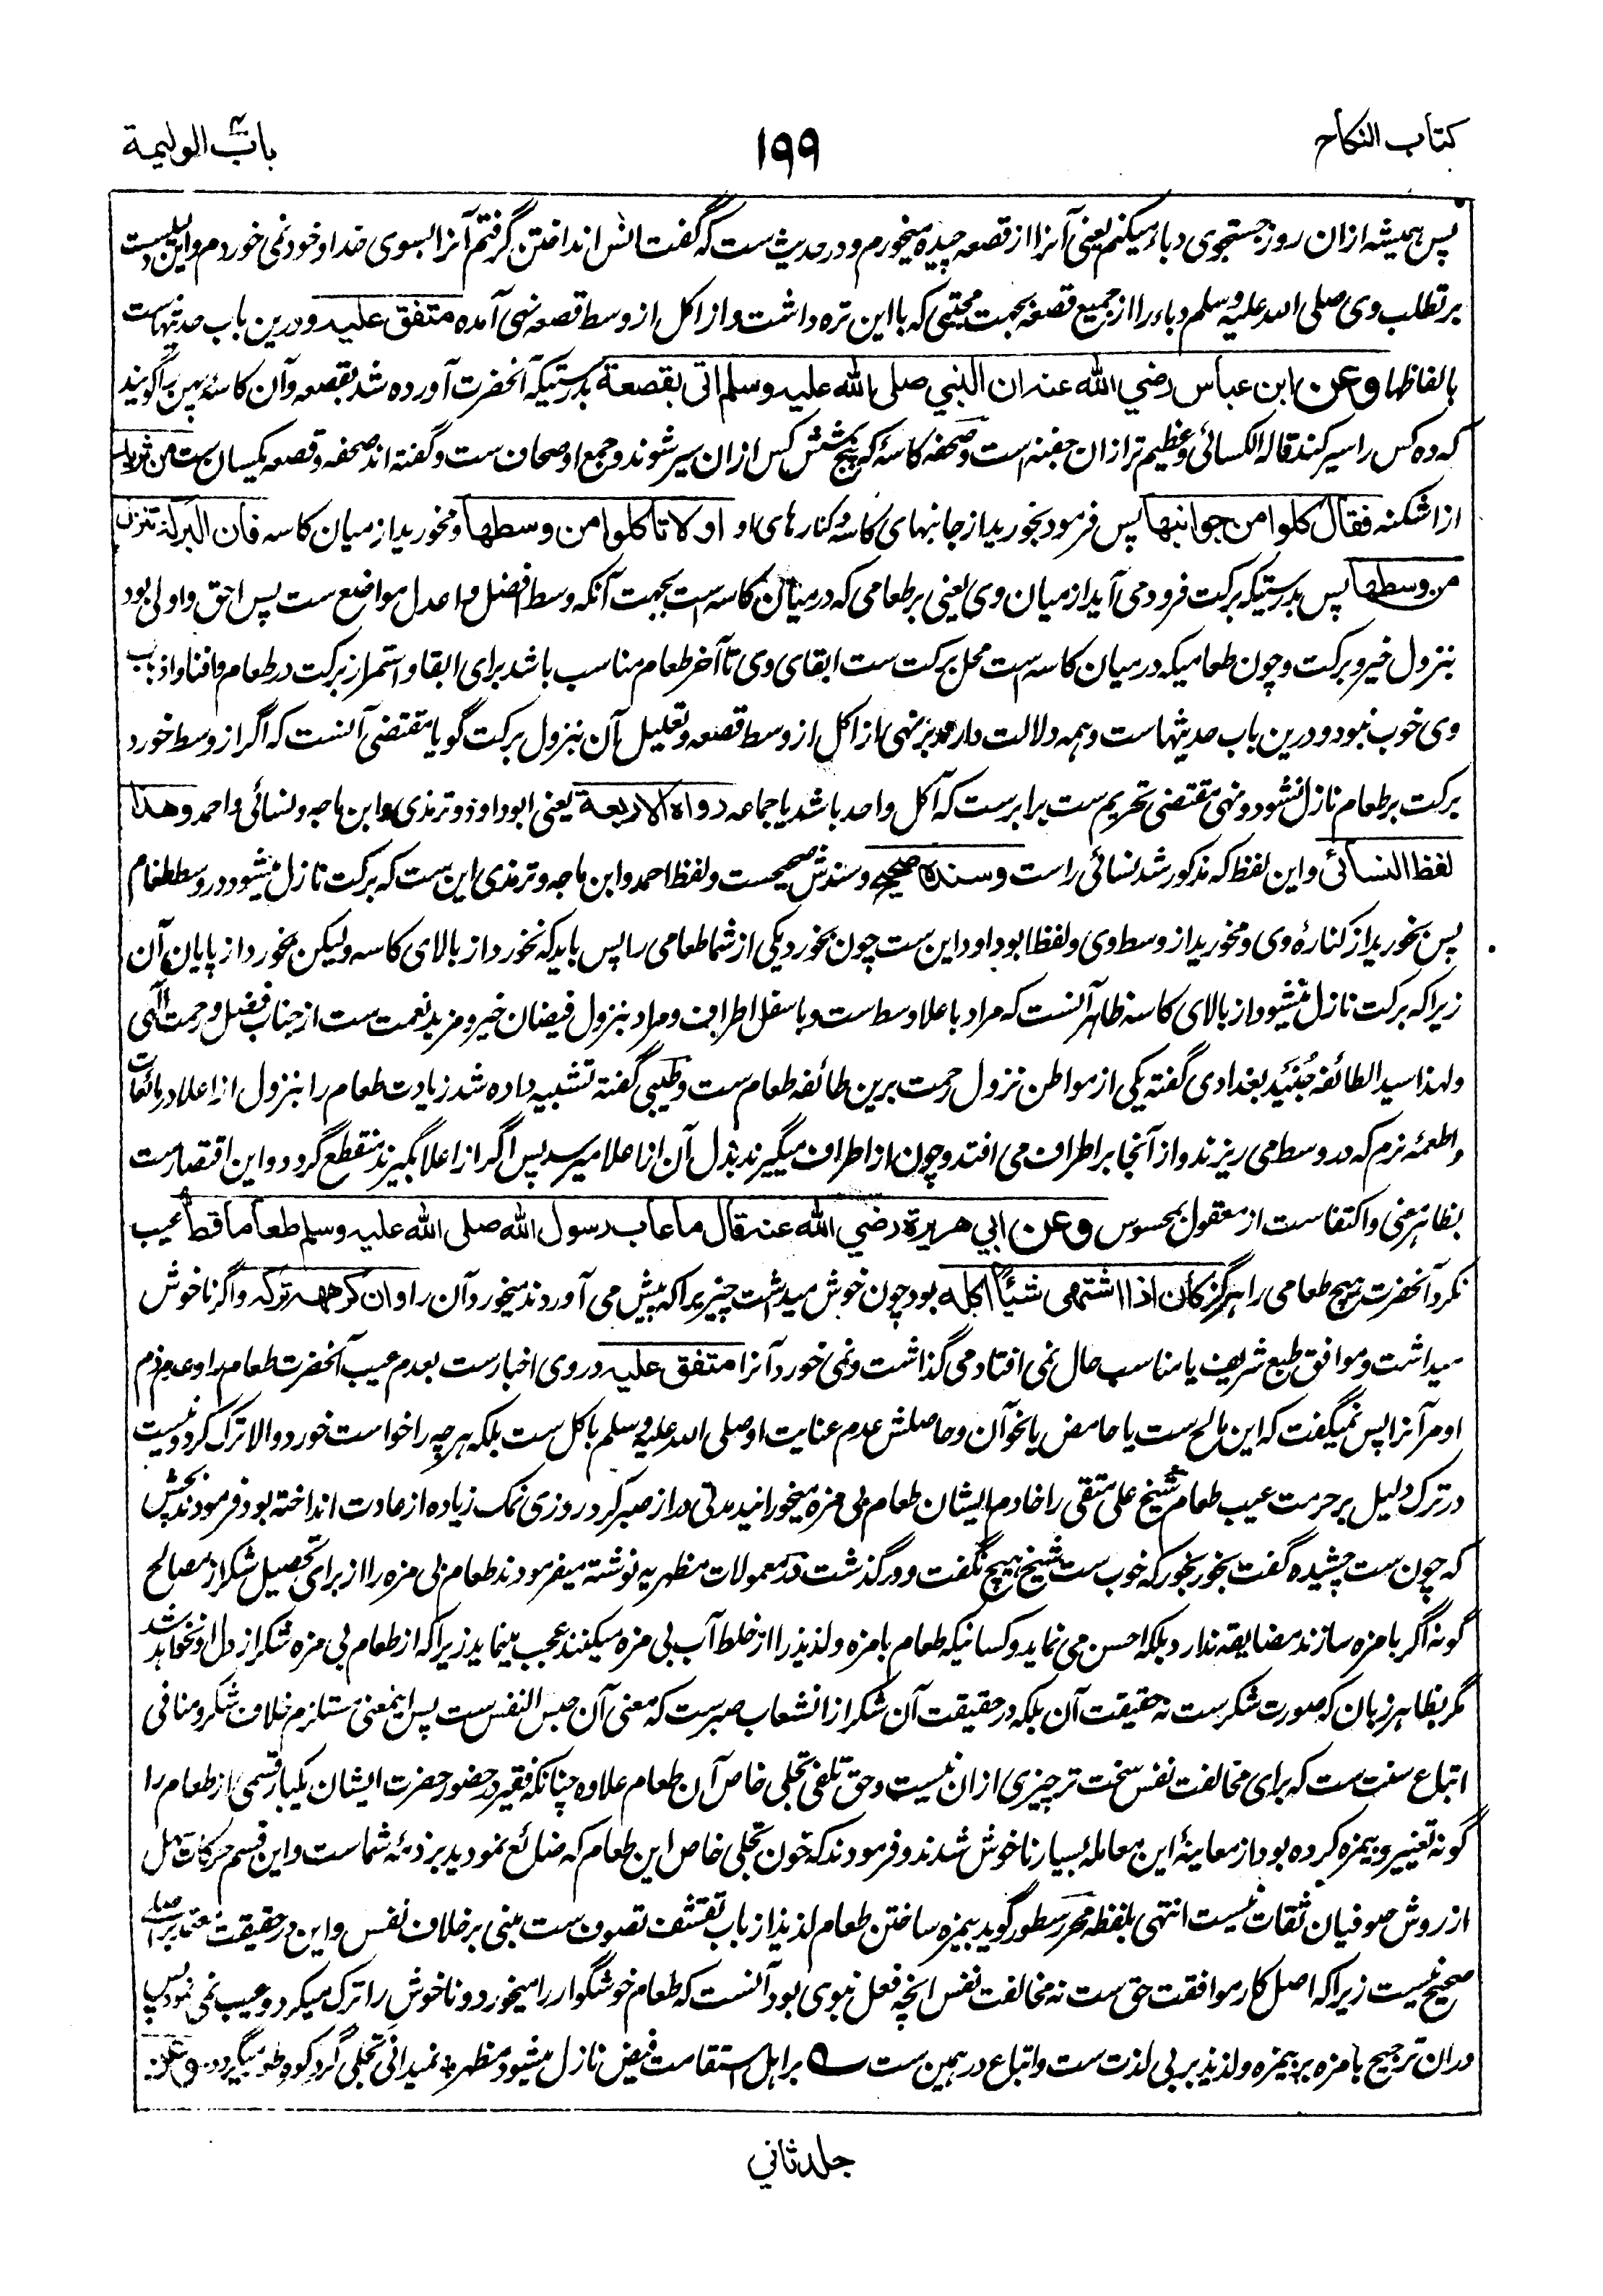 كتاب النكاح
١٩٩
باب الوليمة
پس همیشه ازان روز جستجوی دباء میکنم یعنی آنرا از قصعه چیده میخورم و در حدیث ست که گفت انس انداختن گرفتم آنرا بسوی خدا و خود نمی خوردم و این دلیل ست
بر تطلب وی صلی الله علیه وسلم دباء را از جمیع قصعه بجهت محبتی که با این تره داشت و از اکل از وسط قصعه نهی آمده متفق عليه و درین باب حدیثهاست
بالفاظها وعن ابن عباس رضي الله عنه ان النبي صلى الله عليه وسلم اتى بقصعة بدرستیکه آنحضرت آورده شد بقصعه و آن کاسه پهن را گویند
که ده کس را سیر کند قاله الکسائی و عظیم تر ازان جفنه است و صحفه کاسه که پنج شش کس ازان سیر شوند و جمع او صحاف ست و گفته اند صحفه و قصعه یکسان ست من ثريد
از اشکنه فقال كلوا من جوانبها پس فرمود بخورید از جانبهای کاسه و کنارهای او ولا تاكلوا من وسطها و مخورید از میان کاسه فان البركة تنزل
من وسطها پس بدرستیکه برکت فرود می آید از میان وی یعنی بر طعامی که در میان کاسه است بجهت آنکه وسط افضل و اعدل مواضع ست پس احق و اولی بود
بنزول خیر و برکت و چون طعامیکه در میان کاسه است محل برکت ست ابقای وی تا آخر طعام مناسب باشد برای ابقا و استمرار برکت در طعام و افنا و اذهاب
وی خوب نبود و درین باب حدیثهاست و همه دلالت دارد بر نهی از اکل از وسط قصعه و تعلیل آن بنزول برکت گویا مقتضی آنست که اگر از وسط خورد
برکت بر طعام نازل نشود و نهی مقتضی تحریم ست برابرست که آکل واحد باشد یا جماعه رواه الاربعة یعنی ابوداود و ترمذی و ابن ماجه و نسائی و احمد وهذا
لفظ النسائي و این لفظ که مذکور شد نسائی راست وسنده صحيح و سندش صحیحست و لفظ احمد و ابن ماجه و ترمذی این ست که برکت نازل میشود در وسط طعام
پس بخورید از کناره وی و مخورید از وسط وی و لفظ ابوداود این ست چون بخورد یکی از شما طعامی را پس باید که نخورد از بالای کاسه ولیکن بخورد از پایان آن
زیرا که برکت نازل میشود از بالای کاسه ظاهر آنست که مراد باعلا وسط ست و باسفل اطراف و مراد بنزول فیضان خیر و مزید نعمت ست از جناب فضل و رحمت الٓهی
ولهذا سید الطائفه جُنَیْد بغدادی گفته یکی از مواطن نزول رحمت برین طائفه طعام ست و طیبی گفته تشبیه داده شد زیادت طعام را بنزول از اعلا در مائعات
و اطعمه نرم که در وسط می ریزند و از آنجا بر اطراف می افتد و چون از اطراف میگیرند بدل آن از اعلا میرسد پس اگر از اعلا بگیرند منقطع گردد و این اقتصارست
بظاهر معنی و اکتفاست از معقول بمحسوس وعن ابي هريرة رضي الله عنه قال ما عاب رسول الله صلى الله عليه وسلم طعاما قط عیب
نکرد آنحضرت هیچ طعامی را هرگز كان اذا اشتهى شيئا اكله بود چون خوش میداشت چیزیرا که پیش می آوردند میخورد آن را وان كرهه تركه و اگر ناخوش
میداشت و موافق طبع شریف یا مناسب حال نمی افتاد می گذاشت و نمی خورد آنرا متفق عليه در وی اخبارست بعدم عیب آنحضرت طعام را و عدم ذم
او مر آنرا پس نمیگفت که این مالح ست یا حامض یا نحو آن و حاصلش عدم عنایت او صلی الله علیه وسلم باکل ست بلکه هرچه را خواست خورد و الا ترک کرد و نیست
در ترک دلیل بر حرمت عیب طعام شیخ علی متقی را خادم ایشان طعام بی مزه میخورانید مدتی دراز صبر کرد روزی نمک زیاده از عادت انداخته بود فرمودند بچش
که چون ست چشیده گفت بخور بخور که خوب ست شیخ هیچ نگفت و درگذشت در معمولات مظهریه نوشته میفرمودند طعام بی مزه را از برای تحصیل شکر از مصالح
گونه اگر بامزه سازند مضایقه ندارد بلکه احسن می نماید و کسانیکه طعام بامزه و لذیذ را از خلط آب بی مزه میکنند عجب مینماید زیرا که از طعام بی مزه شکر از دل ادا نخواهد شد
مگر بظاهر زبان که صورت شکرست نه حقیقت آن بلکه در حقیقت آن شکر از انشعاب صبرست که معنی آن حبس النفس ست پس اینمعنی مستلزم خلاف شکر و منافی
اتباع سنت ست که برای مخالفت نفس سخت تر چیزی ازان نیست و حق تلفی تجلی خاص آن طعام علاوه چنانکه فقیر در حضور حضرت ایشان یکبار قسمی از طعام را
گونه تغییر و بیمزه کرده بود از معاینه این معامله بسیار ناخوش شدند و فرمودند که خون تجلی خاص این طعام که ضائع نمودید بر ذمه شماست و این قسم حرکات مهمل
از روش صوفیان ثقات نیست انتهی بلفظه محرر سطور گوید بیمزه ساختن طعام لذیذ از باب تقشف تصوف ست مبنی بر خلاف نفس و این در حقیقت معتمد بر اصلی
صحیح نیست زیرا که اصل کار موافقت حق ست نه مخالفت نفس انچه فعل نبوی بود آنست که طعام خوشگوار را میخورد و ناخوش را ترک میکرد و عیب نمی نمود پس
دران ترجیح بامزه بر بیمزه و لذیذ بر بی لذت ست و اتباع در همین ست ؎ بر اهل استقامت فیض نازل میشود مظهر * نمیدانی تجلی گرد کوه طور میگردد وعن
جلد ثاني